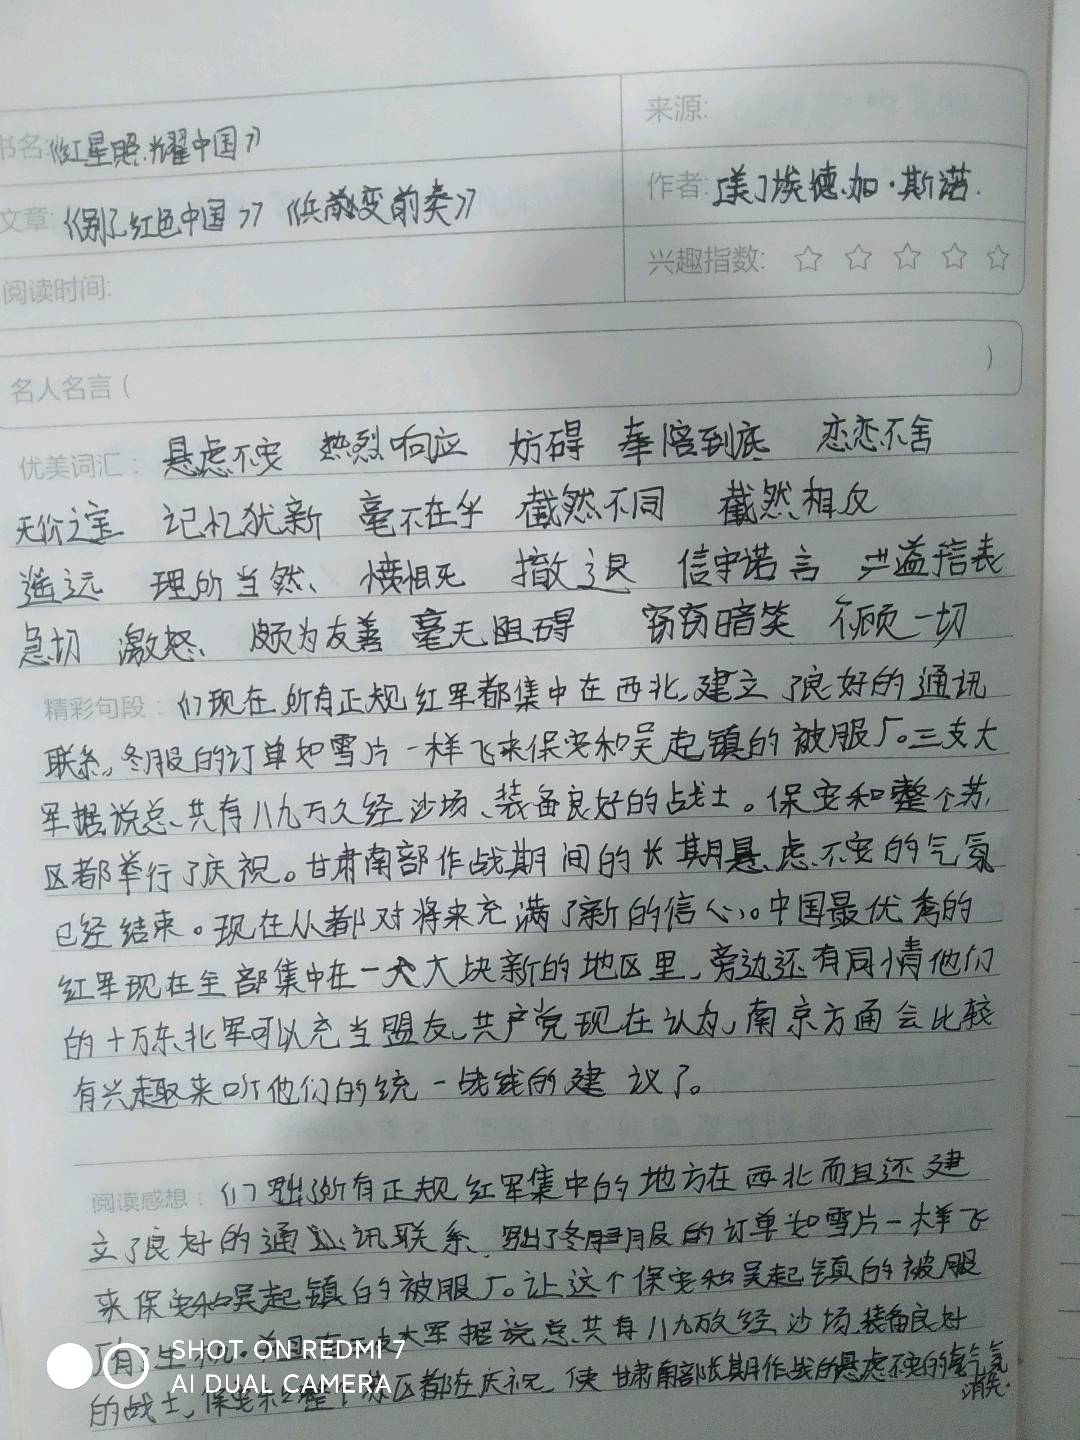 书名:《红星照耀中国》
来源:
文章:《别了,红色中国》《兵变前奏》
作者:[美]埃德加·斯诺
阅读时间:
兴趣指数: ☆ ☆ ☆ ☆ ☆
名人名言( )
优美词汇: 悬虑不安 热烈响应 妨碍 奉陪到底 恋恋不舍
无价之宝 记忆犹新 毫不在乎 截然不同 截然相反
遥远 理所当然、 愤恨死 撤退 信守诺言
急切 激怒、 颇为友善 毫无阻碍 窃窃暗笑 不顾一切
精彩句段: (1)现在所有正规红军都集中在西北,建立了良好的通讯
联系。冬服的订单如雪片一样飞来保安和吴起镇的被服厂。三支大
军据说总共有八九万久经沙场、装备良好的战士。保安和整个苏
区都举行了庆祝。甘肃南部作战期间的长期悬虑不安的气氛
已经结束。现在人人都对将来充满了新的信心。中国最优秀的
红军现在全部集中在一大块新的地区里,旁边还有同情他们
的十万东北军可以充当盟友,共产党现在认为,南京方面会比较
有兴趣来听他们的统一战线的建议了。
阅读感想: (1)写出了所有正规红军集中的地方在西北而且还建
立了良好的通讯联系,写出了冬服的订单如雪片一样飞
来保安和吴起镇的被服厂。让这个保安和吴起镇的被服
厂有了生机。大军据说总共有八九万久经沙场,装备良好
的战士,保安和整个苏区都在庆祝,使甘肃南部长期作战的悬虑不安的气氛
消失.
SHOT ON REDMI 7
AI DUAL CAMERA